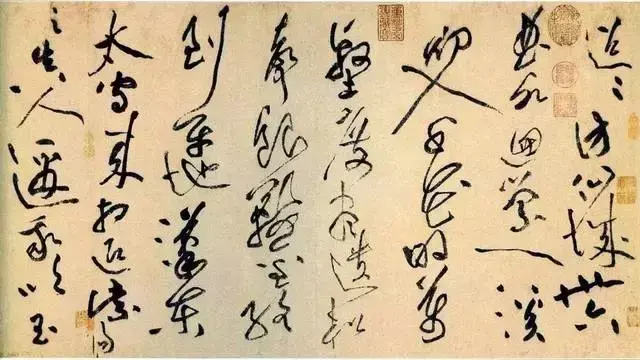 迢〻訪仙城卅六
曲水迴縈一溪
初入千花明萬
壑度盡松
聲銀鞍金絡
到平地漢東
太守來相迎紫陽
之真人邀我吹玉